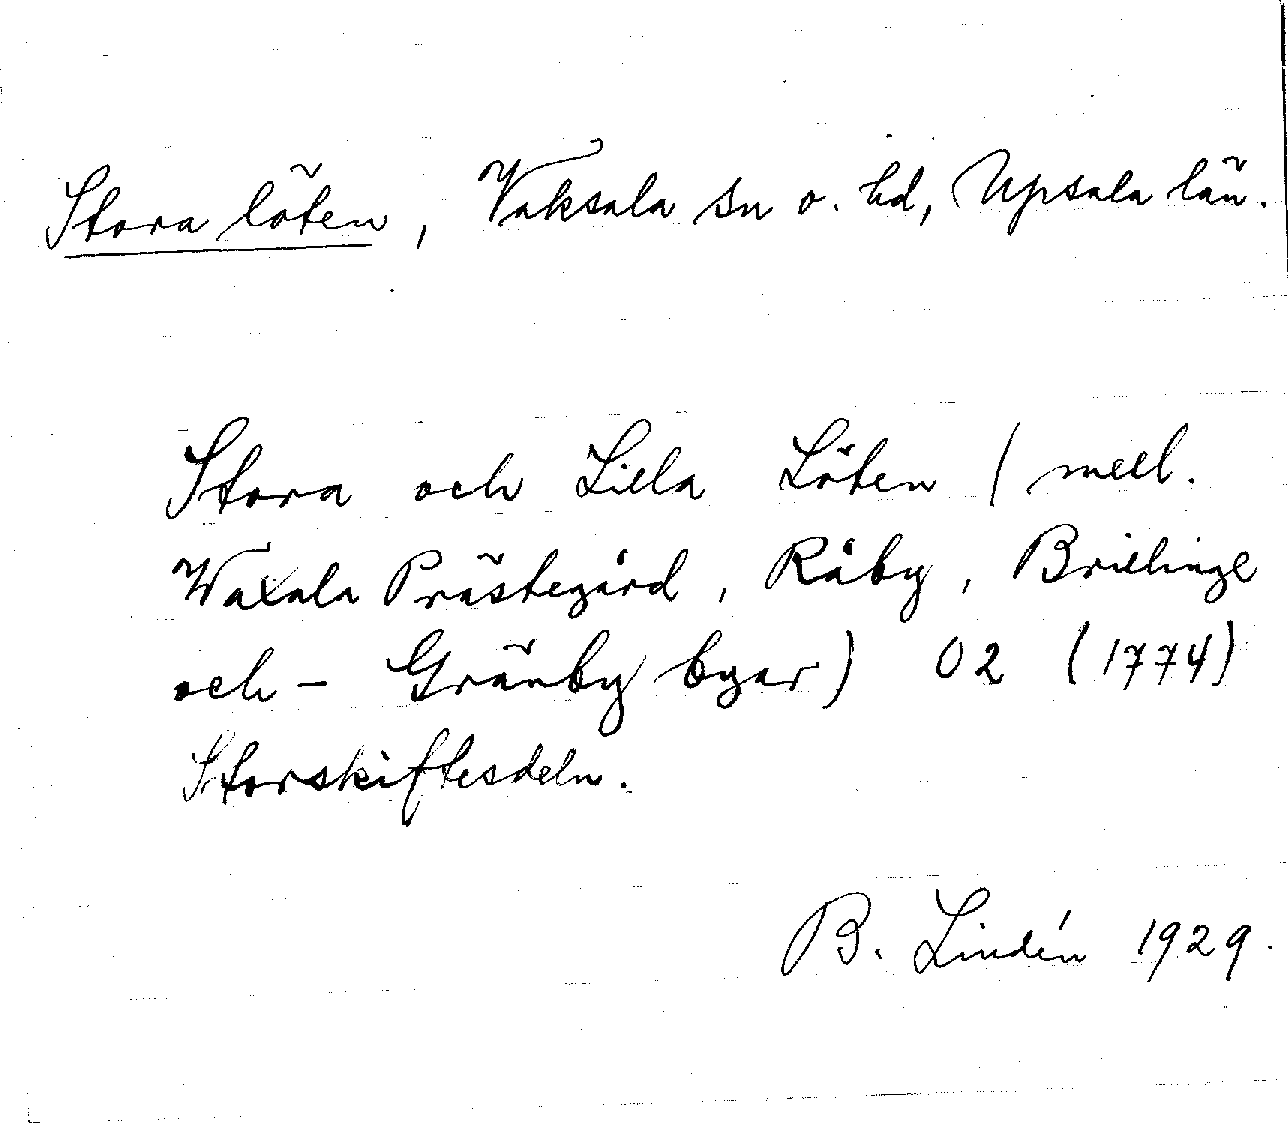 Stora löten, Vaksala sn o. hd, Upsala län.
Stora och Lilla Löten (mell.
Waxala Prästegård, Råby, Brillinge
och - Gränby byar) 02 (1774)
Storskiftesdeln.
B. Lindén 1929.